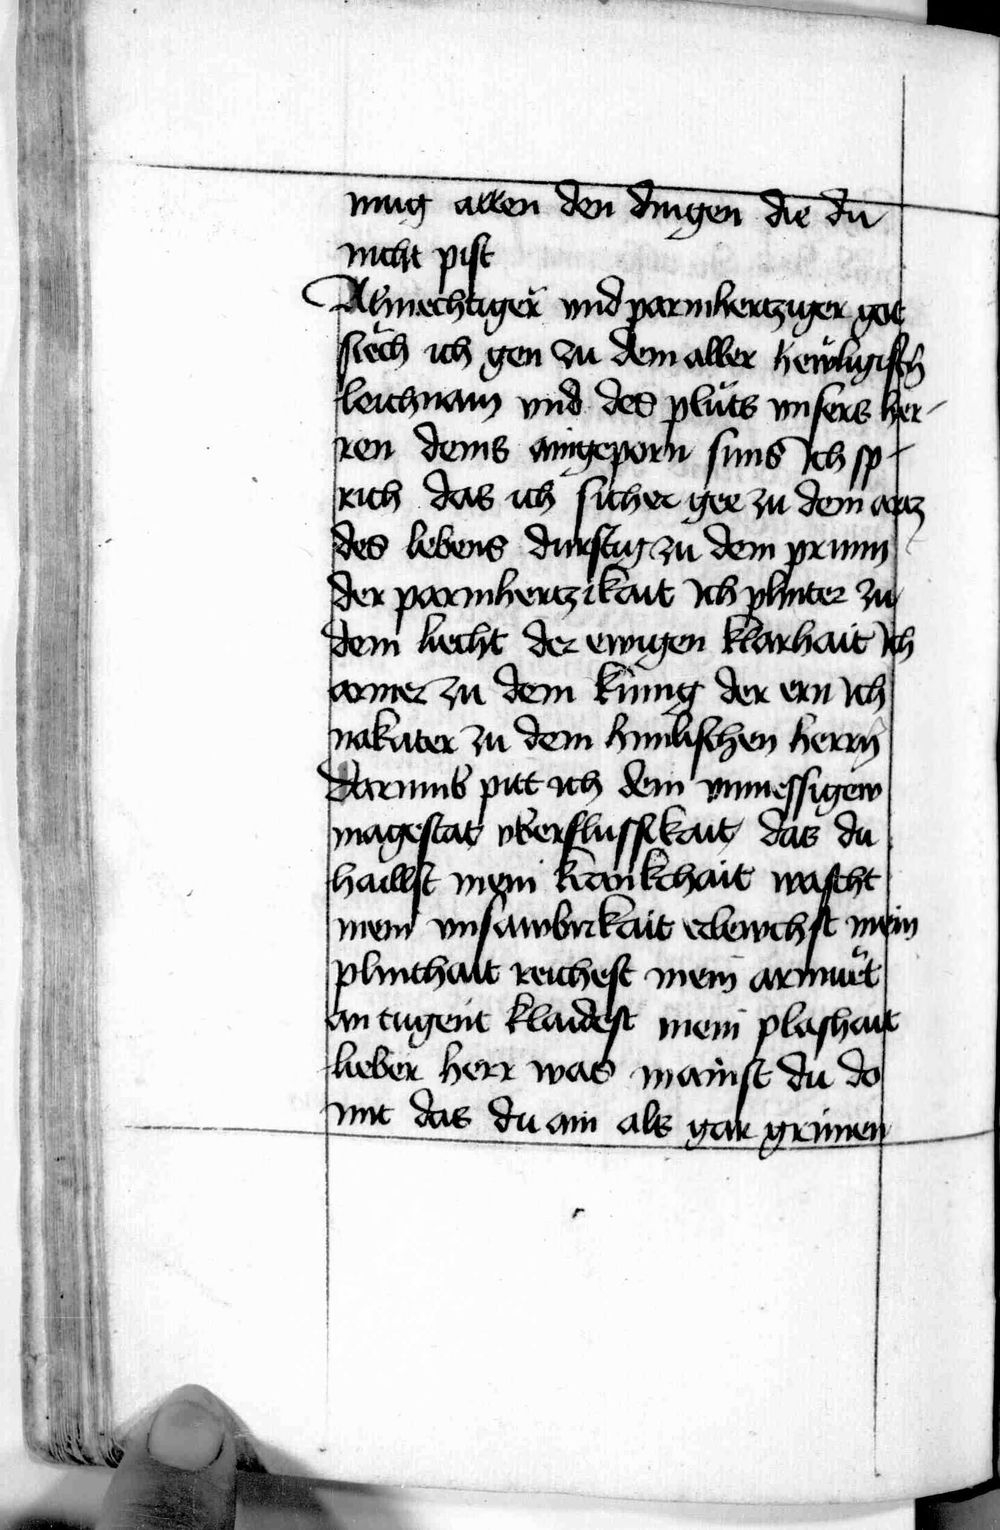 nung allen den dingen die du
nicht pist
Almechtiger vnd parmhertziger got
siech ich gen zu dem aller hewligisth
leichnam vnd des plůts vnsers her-
ren deins aingeporn suns Ich sp-
rich das ich sicher gee zu dem artz
des lebens durstig zu dem prunn
der parmhertzikait Ich plinter zu
dem liecht der ewigen klarhait Ich
armer zu dem kúnig der ern Ich
nakater zu dem himlischen herrn
Darumb pitt ich dein vnmessigew
magestat vberflussikait das du
haillst mein krankchait wascht
mein vnsawbrikait erlewchst mein
plinthait reichest mein armůet
an tugent klaidest mein plashait
lieber herr was mainst du do
mit das du ain als gar grimen